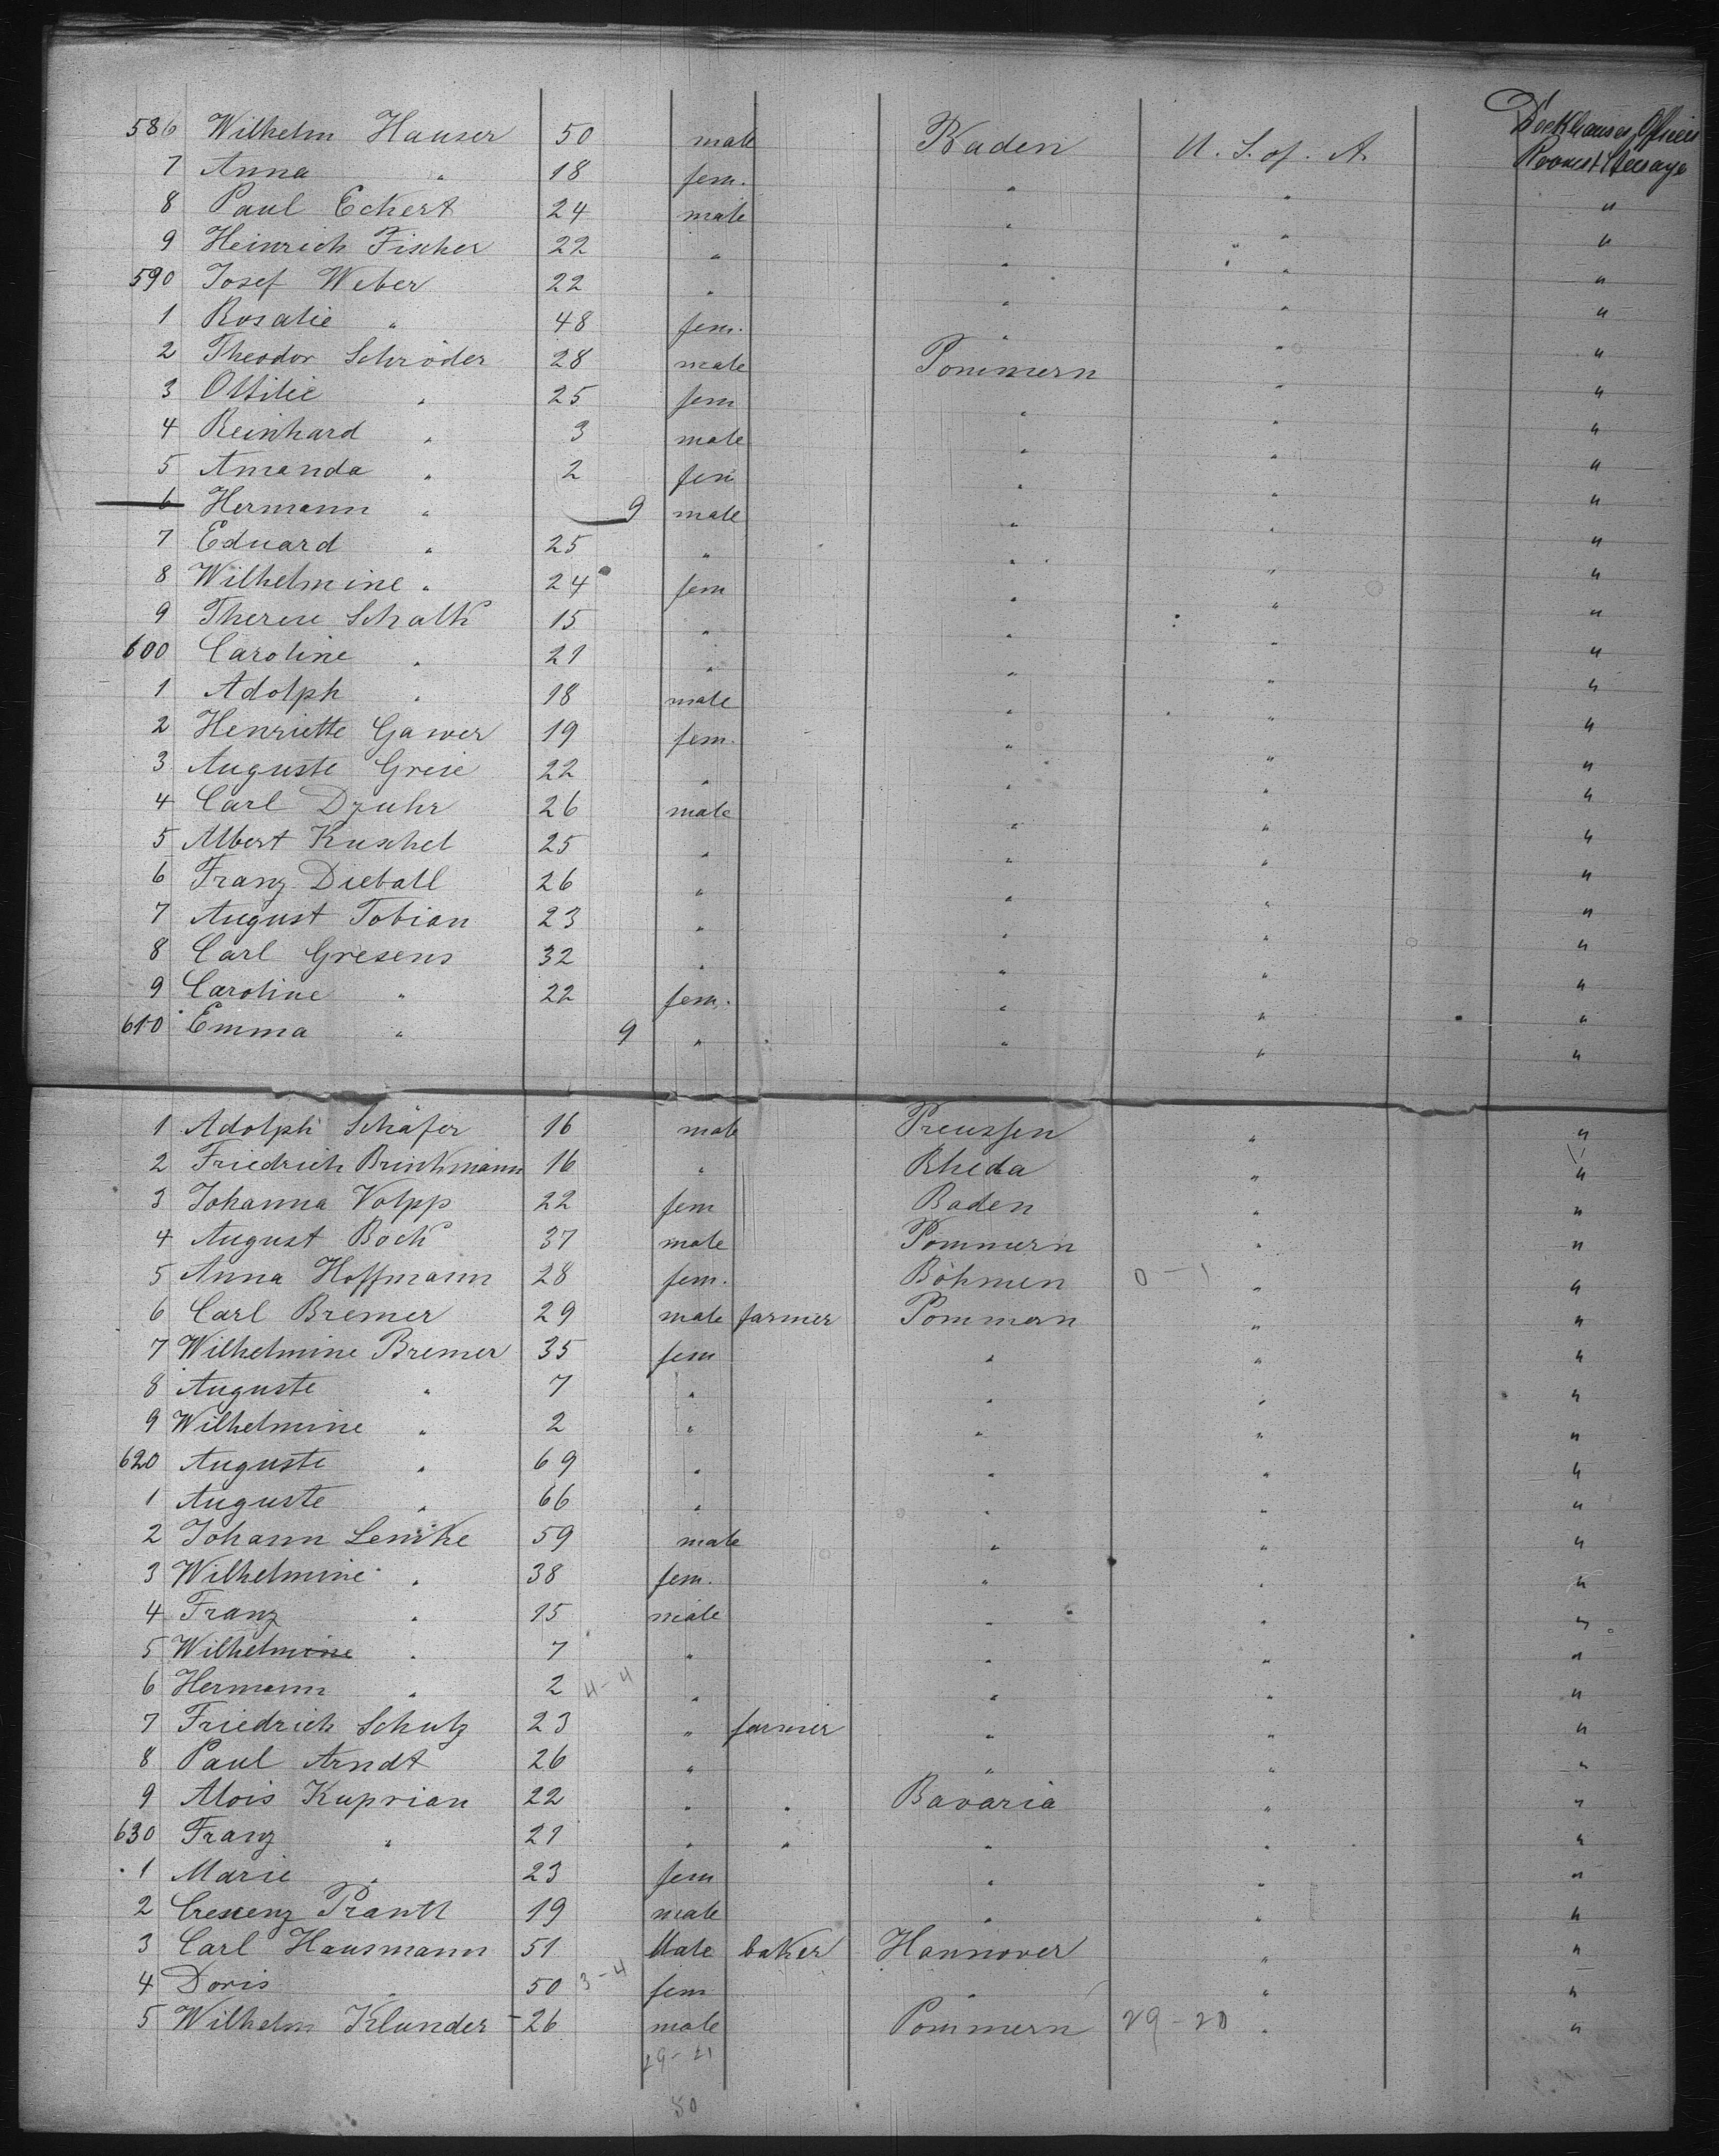 586 Wilhelm Hauser 50 male Baden U. S. of. A. Deckhouses, Officers Rooms & Steerage
7 Anna " 18 fem. " " "
8 Paul Eckert 24 male " " "
9 Heinrich Fischer 22 " " " "
590 Josef Weber 22 " " " "
1 Rosalie " 48 fem. " " "
2 Theodor Schröder 28 male Pommern " "
3 Ottilie " 25 fem " " "
4 Reinhard " 3 male " " "
5 Amanda " 2 fem " " "
6 Hermann " 9 male " " "
7 Eduard " 25 " " " "
8 Wilhelmine " 24 fem " " "
9 Therese Schalk 15 " " " "
600 Caroline " 21 " " " "
1 Adolph " 18 male " " "
2 Henriette Gawer 19 fem. " " "
3 Auguste Grese 22 " " " "
4 Carl Dzuhr 26 male " " "
5 Albert Kuschel 25 " " " "
6 Franz Dieball 26 " " " "
7 August Tobian 23 " " " "
8 Carl Gresens 32 " " " "
9 Caroline " 22 fem. " " "
610 Emma " 9 " " " "
1 Adolph Schäfer 16 male Preussen " "
2 Friedrich Brinkmann 16 " Rheda " "
3 Johanna Volpp 22 fem Baden " "
4 August Bock 37 male Pommern " "
5 Anna Hoffmann 28 fem. Böhmen 0-1 " "
6 Carl Bremer 29 male farmer Pommern " "
7 Wilhelmine Bremer 35 fem " " "
8 Auguste " 7 " " " "
9 Wilhelmine " 2 " " " "
620 Auguste " 69 " " " "
1 Auguste " 66 " " " "
2 Johann Lemke 59 male " " "
3 Wilhelmine " 38 fem. " " "
4 Franz " 15 male " " "
5 Wilhelmine " 7 " " " "
6 Hermann " 2 4-4 " " " "
7 Friedrich Schulz 23 " farmer " " "
8 Paul Arndt 26 " " " "
9 Alois Kuprian 22 " " Bavaria " "
630 Franz " 21 " " " " "
1 Marie " 23 fem " " "
2 Crescenz Prantl 19 male " " "
3 Carl Hausmann 51 Male baker Hannover " "
4 Doris " 50 3-4 fem " " "
5 Wilhelm Klunder 26 male Pommern 29-20 " "
29-21
50